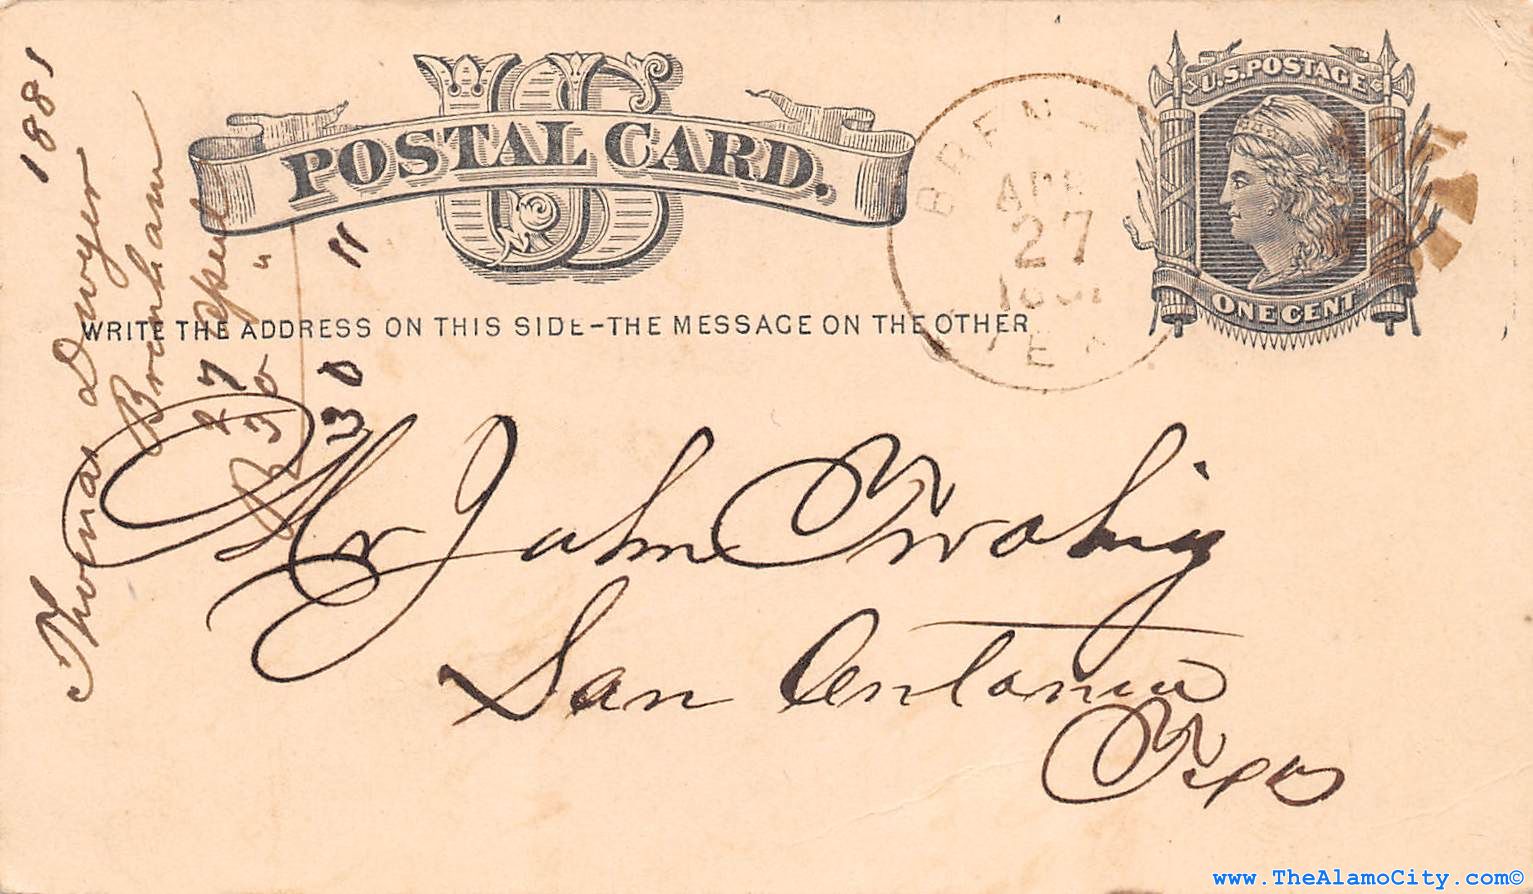 U.S. POSTAGE
US
POSTAL CARD.
ONE CENT
WRITE THE ADDRESS ON THIS SIDE-THE MESSAGE ON THE OTHER
BREN
APR
27
TEX
Mr John Twohig
San Antonia
Texas
1881
Thomas Dwyer
Brenham
27 April
R 30 "
30 "
www.TheAlamoCity.com©